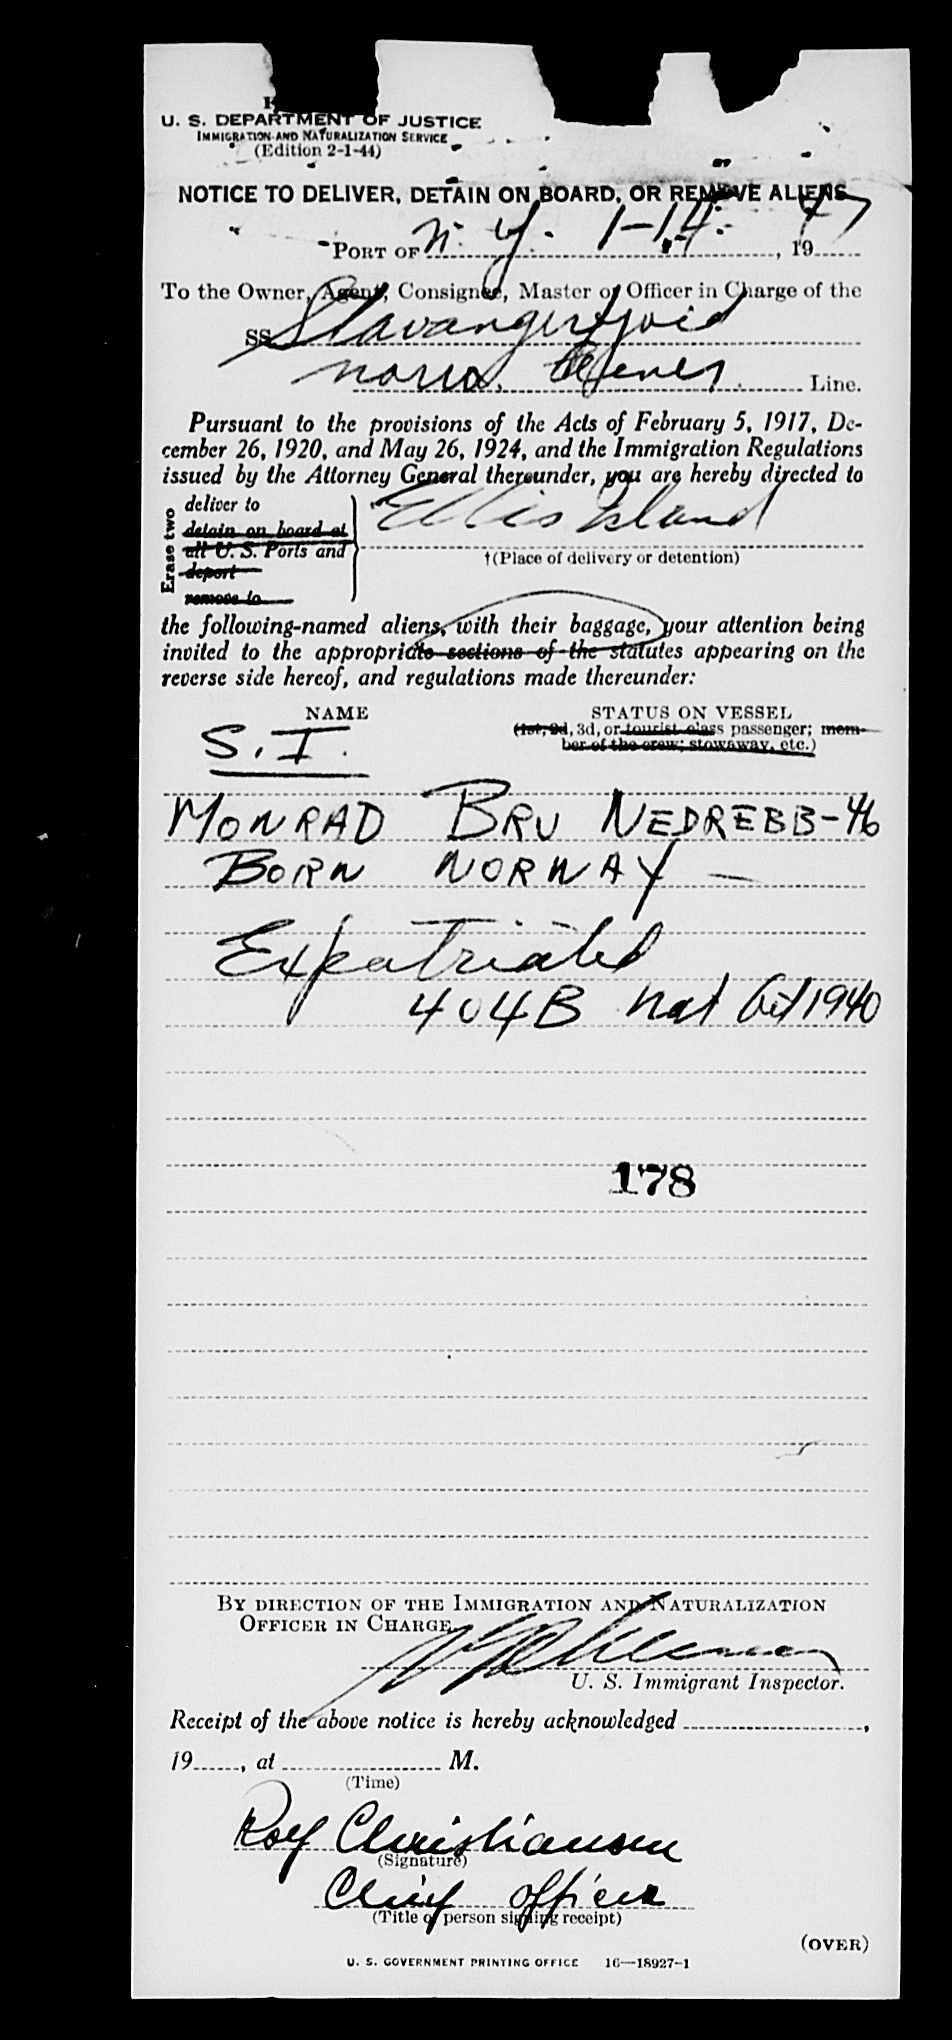 U. S. DEPARTMENT OF JUSTICE
IMMIGRATION AND NATURALIZATION SERVICE
(Edition 2-1-44)
NOTICE TO DELIVER, DETAIN ON BOARD, OR REMOVE ALIENS
PORT OF N. Y. 1-14-, 1947
To the Owner, Agent, Consignee, Master or Officer in Charge of the
SS Stavangerfjord
Line.
Pursuant to the provisions of the Acts of February 5, 1917, De-
cember 26, 1920, and May 26, 1924, and the Immigration Regulations
issued by the Attorney General thereunder, you are hereby directed to
Erase two
deliver to
detain on board at
all U. S. Ports and
deport
remove to
Ellis Island
†(Place of delivery or detention)
the following-named aliens, with their baggage, your attention being
invited to the appropriate sections of the statutes appearing on the
reverse side hereof, and regulations made thereunder:
NAME
STATUS ON VESSEL
(1st, 2d, 3d, or tourist class passenger; mem-
ber of the crew; stowaway, etc.)
S. I.
MONRAD BRU NEDREBB-46
BORN NORWAY —
Expatriated
404B Nat Act 1940
178
BY DIRECTION OF THE IMMIGRATION AND NATURALIZATION
OFFICER IN CHARGE
U. S. Immigrant Inspector.
Receipt of the above notice is hereby acknowledged ,
19 , at M.
(Time)
Rolf Christiansen
(Signature)
Chief officer
(Title of person signing receipt)
(OVER)
U. S. GOVERNMENT PRINTING OFFICE 16—18927-1